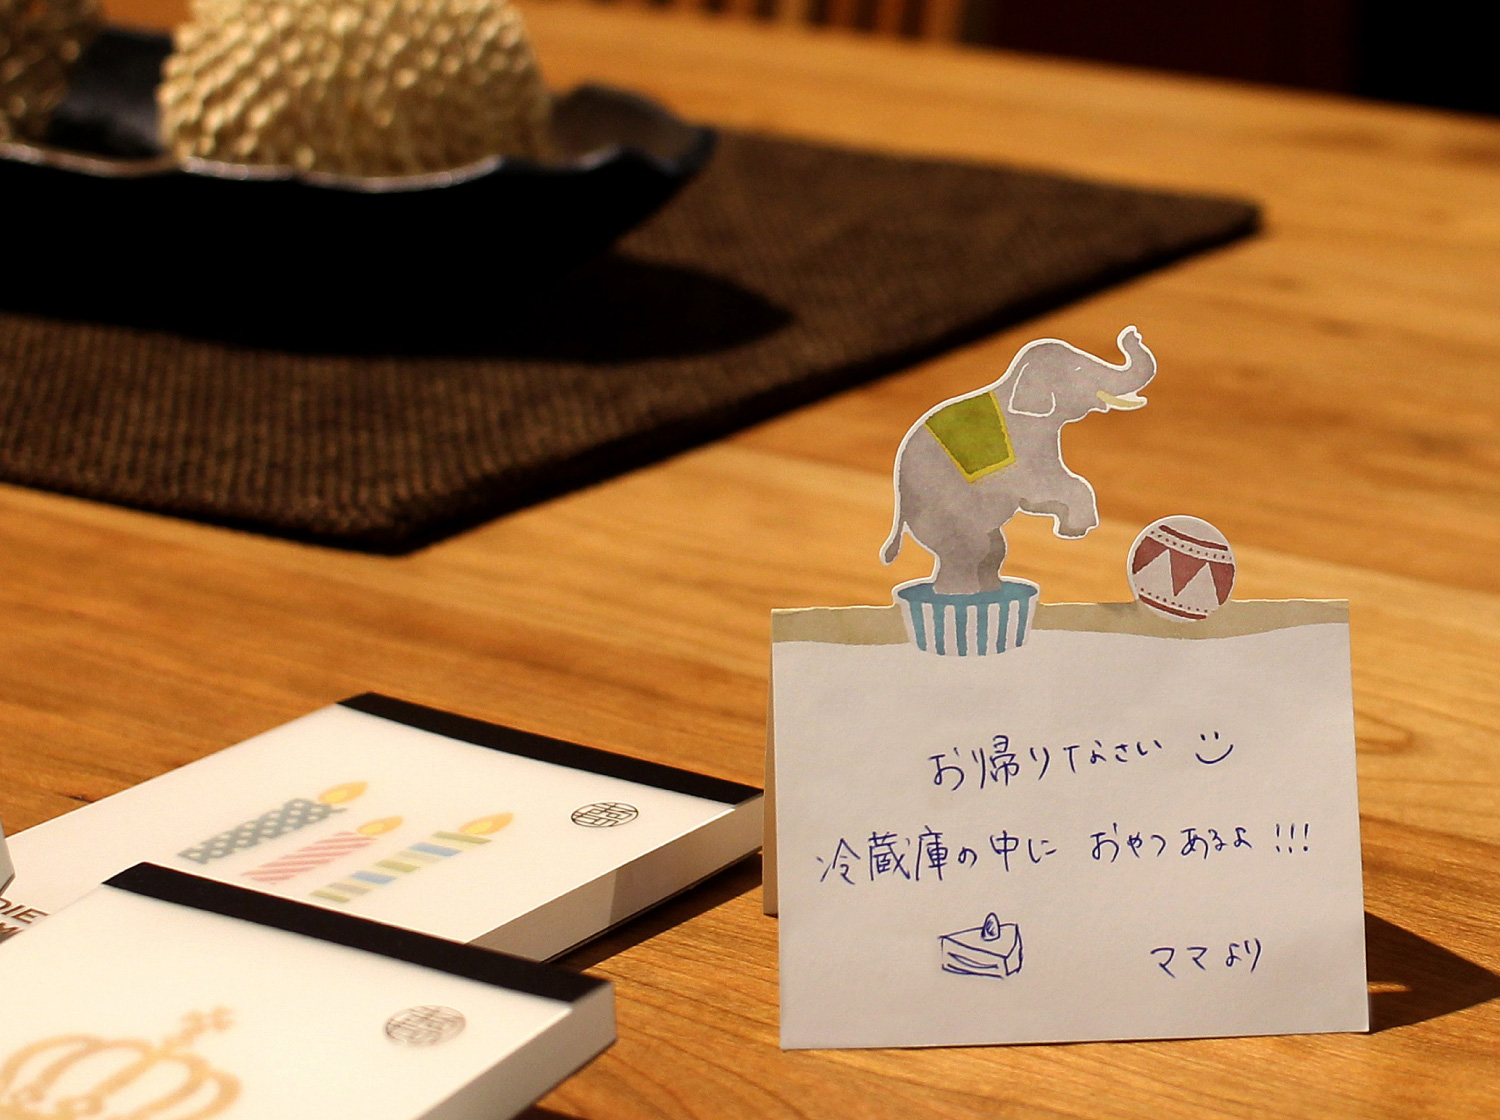 お帰りなさい
冷蔵庫の中に おやつあるよ!!!
ママより